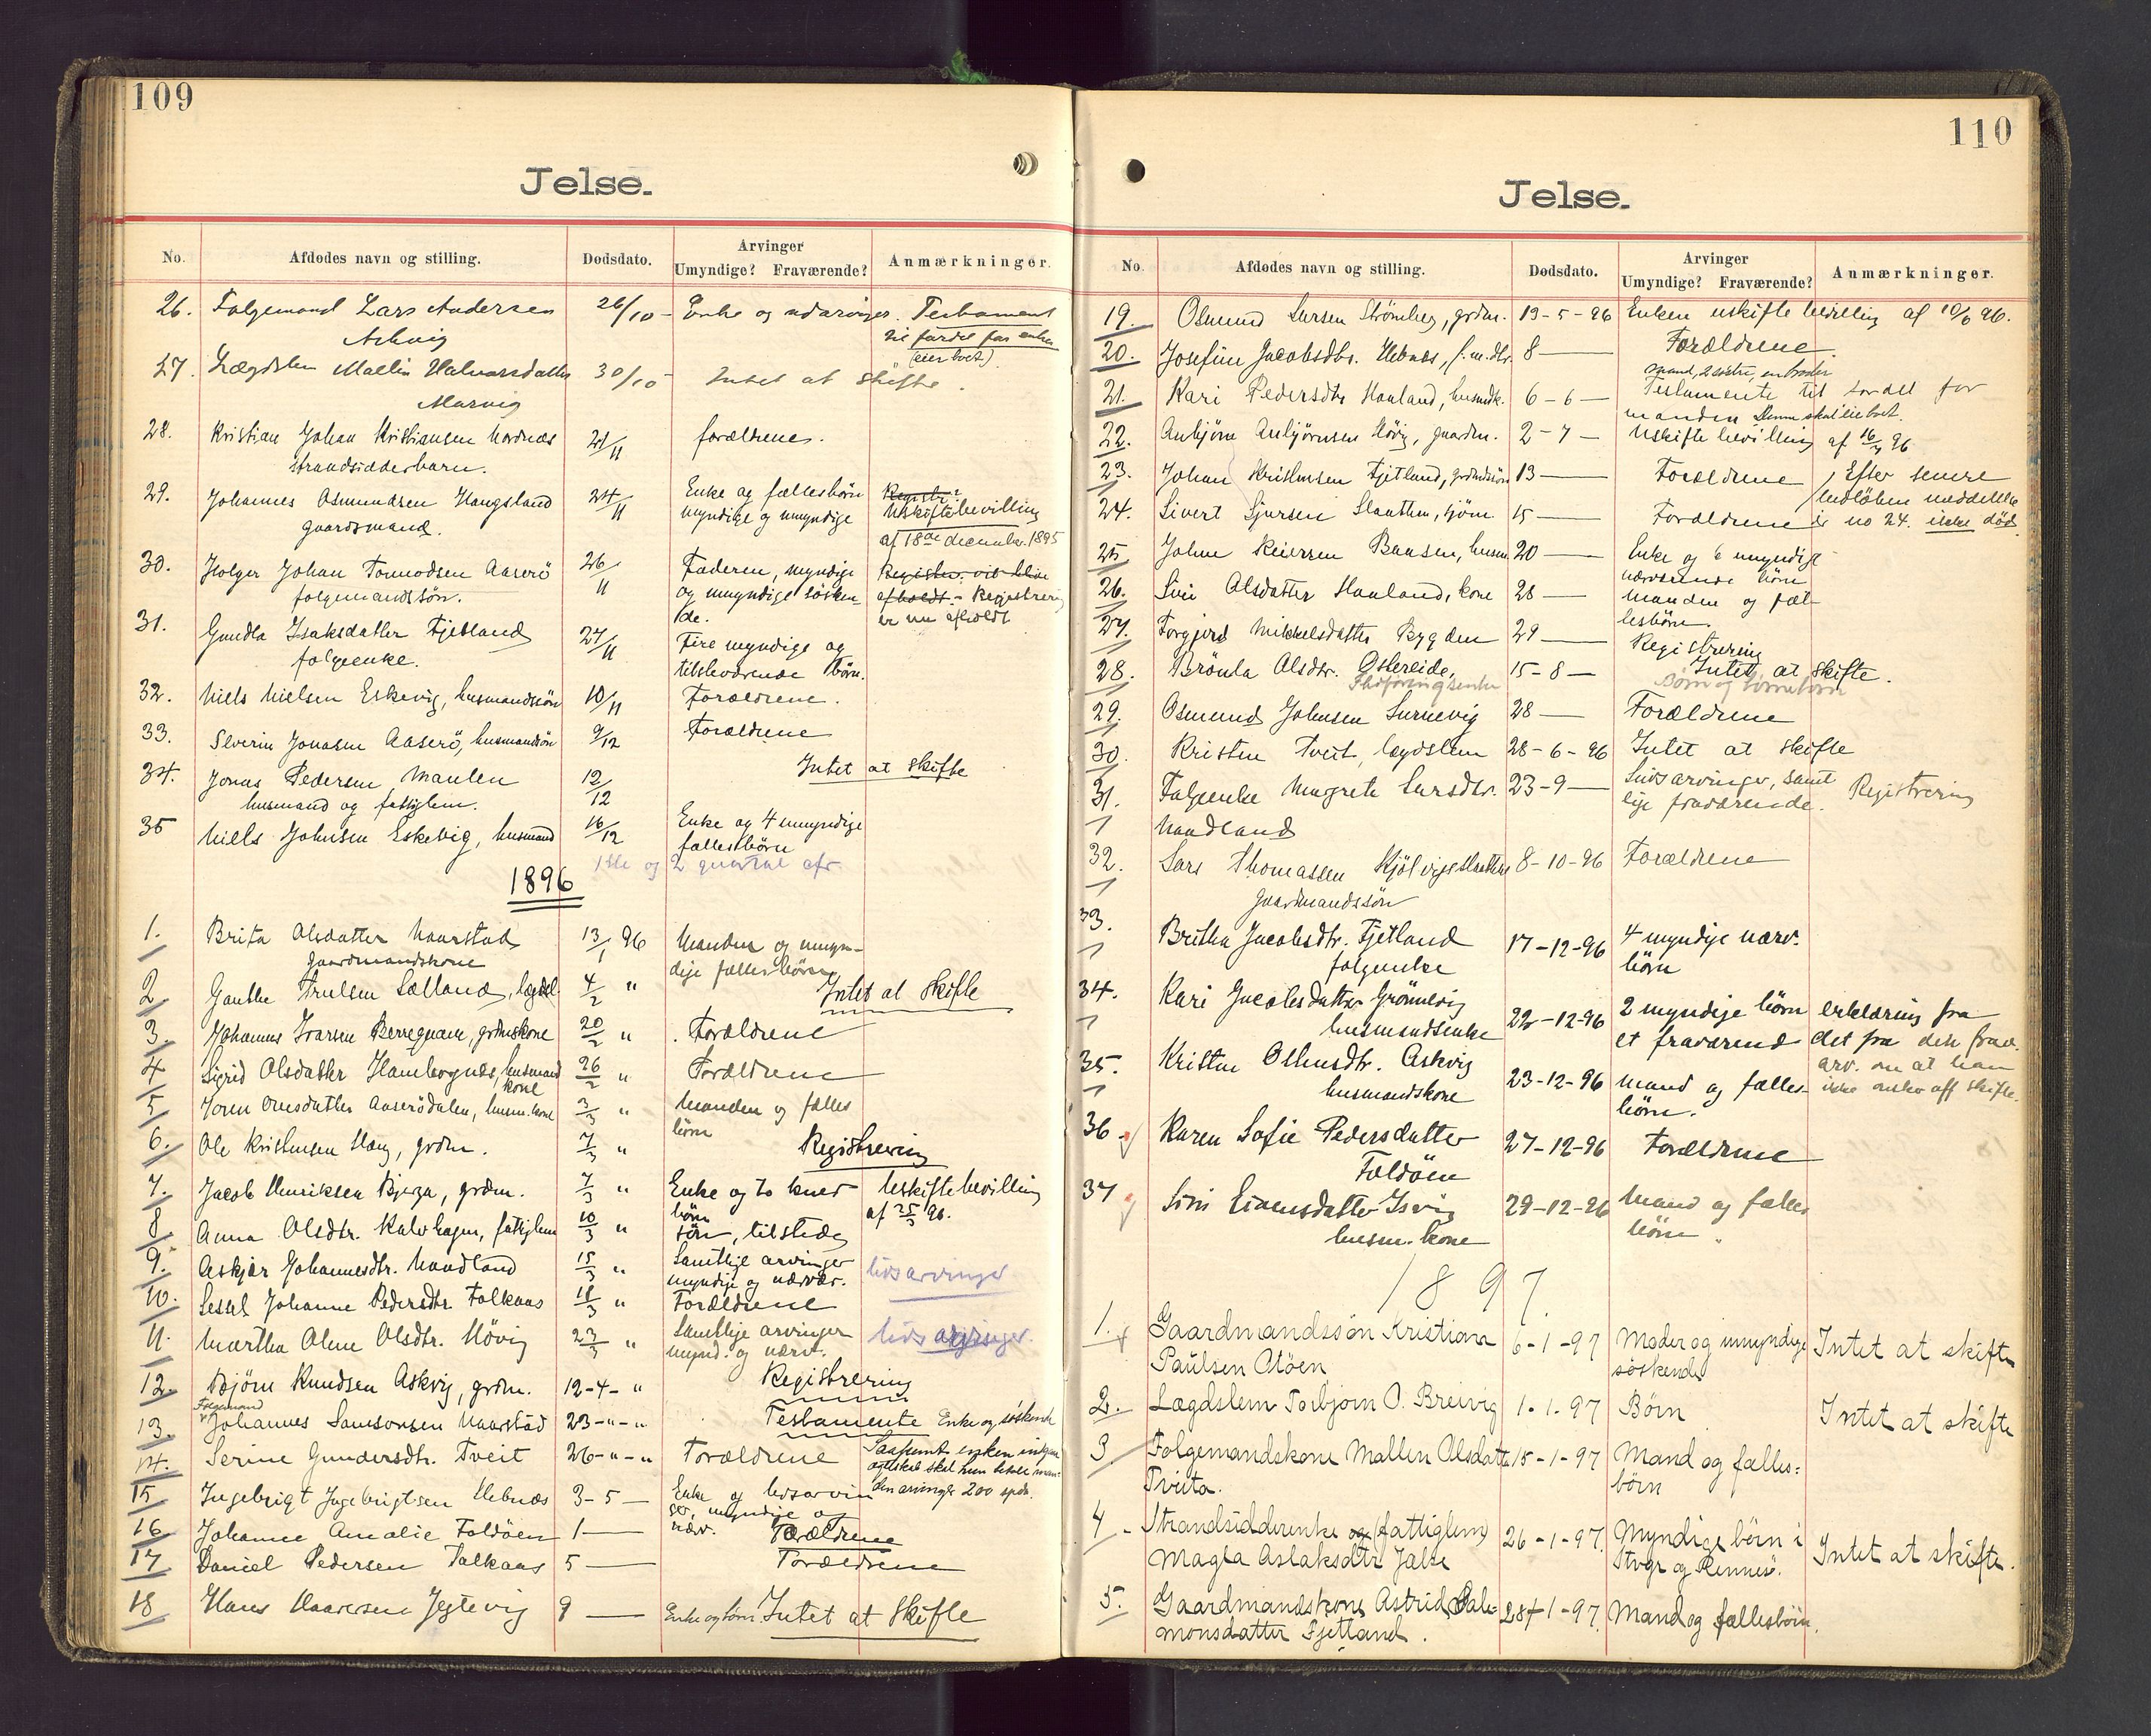 109
Jelse.
No. Afdødes navn og stilling. Dødsdato. Arvinger Umyndige? Fraværende? Anmærkninger.
26. Folgemand Lars Andersen 26/10 - Enke og udarvinger. Testament
Askvig til fordel for enken
(eier boet).
27. Lægdslem Mallin Halvorsdatter 30/10 - Intet at skifte.
Marvig
28. Kristian Johan Kristiansen Nordnæs 21/11 forældrene.
strandsidderbarn.
29. Johannes Osmundsen Haugsland 24/11 Enke og fællesbörn Registr?
gaardsmand. myndige og umyndige Uskiftebevilling
af 18de december 1895
30. Holger Johan Tormodsen Aaserö 26/11 Faderen, myndige Register. vil blive
folgemandssön. og umyndige sösken- afholdt. - Registrering
de. er nu afholdt
31. Gundla Isaksdatter Fjetland 27/11 Fire myndige og
folgeenke. tilstedeværende börn.
32. Niels Nielsen Eskevig, husmandssön 10/11 Forældrene.
33. Severin Jonasen Aaserö, husmandssön 9/12 Forældrene
34. Jonas Pedersen Maulen 12/12 Intet at skifte
husmand og fattiglem.
35 Niels Johnsen Eskevig, husmand 16/12 Enke og 4 umyndige
fællesbörn
1ste og 2 quartal afs
1896
1. Brita Olsdatter Naarstad 13/1 96 Manden og umyn-
gaardmandskone dige fællesbörn
2 Gauthe Trulsen Sælland, lægdsl. 4/2 " Intet at skifte
3. Johannes Ivarsen Berreqvam, grdmskone 20/2 " Forældrene
4 Sigrid Olsdatter Hambognæs, husmand 26/2 " Forældrene
kone
5 Joren Ornsdatter Aaserödalen, husm. kone 3/3 " Manden og fælles
börn
6. Ole Kristensen Haug, grdm. 7/3 " Registrering
7. Jacob Henriksen Bjerga, grdm. 7/3 " Enke og to Uskiftebevilling
börn af 25/3 96.
8 Anna Olsdtr. Kalvhagen, fattiglem 10/3 " sön, tilstede
9. Askjær Johannesdtr. Naadland 15/3 " Samtlige arvinger livsarvinger
myndige og nærvær.
10. Sessel Johanne Pedersdtr Falkaas 18/3 " Forældrene
11. Martha Oline Olsdtr. Hövig 23/3 " Samtlige arvinger livsarvinger.
mynd. og nærv.
12. Björn Knudsen Askvig, grdm. 12-4- " Registrering
Folgemand
13. Johannes Samsonsen Naarstad 23-"-" Testamente Enke og söskende
14. Serine Gundersdtr. Tveit 26-"-" Forældrene Saafremt enken indgaar
ægteskab skal hun betale man-
15 Ingebrigt Ingebrigtsen Hebnæs 3-5- Enke og livsarvin dens arvinger 200 spdr.
ger, myndige og
nærv.
16 Johanne Amalie Foldöen 1 — Forældrene
17 Daniel Pedersen Falkaas 5 — Forældrene
18 Hans Haaversen Jegtevig 9 — Enke og börn Intet at skifte
110
Jelse.
No. Afdødes navn og stilling. Dødsdato. Arvinger Umyndige? Fraværende? Anmærkninger.
19. Osmund Larsen Strömberg, grdm. 13-5-96 Enken uskifte bevilling af 10/6 96.
20. Josefine Jacobsdtr. Hebnæs, f.m.dtr. 8 — Forældrene.
mand, 2 söstre, en broder
21. Kari Pedersdtr Hauland, husmdk. 6-6- Testamente til fordel for
manden Denne skal eie boet.
22. Anbjörn Anbjörnsen Hövig, gaardm. 2-7- Uskiftebevilling af 16/7 96
23. Johan Kristensen Fjetland, grdmdssön 13 — Forældrene Efter senere
indlöben meddelelse
24. Sivert Sjursen Slaathen, 15 — Forældrene er no 24. ikke död
25 Johne Reiersen Baasen, husm. 20 — Enke og 6 umyndige
nærværende börn
26. Siri Olsdatter Hauland, kone 28 — manden og fæl-
lesbörn.
27. Torgjerd Mikkelsdatter Bygden 29 — Registrering
28. Brönla Olsdtr. Östereide, 15-8- Intet at skifte.
Flodföringsenke Börn og börnebörn
29. Osmund Johnsen Surnevig 28 — Forældrene
30. Kristen Tveit, lægdslem 28-6-96 Intet at skifte
31. Folgeenke Margrete Larsdtr. 23-9- Livsarvinger, samt Registrering
Naadland lige fraværende.
32. Lars Thomassen Kjölvigslaatten 8-10-96 Forældrene
gaardmandssön
33. Britha Jacobsdtr. Fjetland 17-12-96 4 myndige nærv.
folgeenke börn
34. Kari Jacobsdatter Grönnevig 22-12-96 2 myndige börn erklæring fra
husmandsenke et fraværend det fra den frav.
arv. om at han
35. Kristen Osmundsdtr. Askvig 23-12-96 mand og fælles- ikke önsker off skifte.
husmandskone börn.
36 Karen Sofie Pedersdatter 27-12-96 Forældrene
Foldöen
37 Siri Einersdatter Isvig 29-12-96 Mand og fælles
husm. kone börn
1897.
1. Gaardmandssön Kristian 6-1-97 Moder og umyndige Intet at skifte
Paulsen Otöen söskende
2. Lægdslem Torbjörn O. Breivig 1-1-97 Börn Intet at skifte
3 Folgemandskone Mallin Olsdatter 15-1-97 Mand og fælles:
Tveita. börn
4 - Strandsidderenke og (fattiglem) 26-1-97. Myndige börn i Intet at skifte.
Magla Aslaksdtr Jalse Stvgr og Rennesö.
5. Gaardmandskone Astrid Sale- 28-1-97. Mand og fællesbörn.
monsdatter Fjetland.